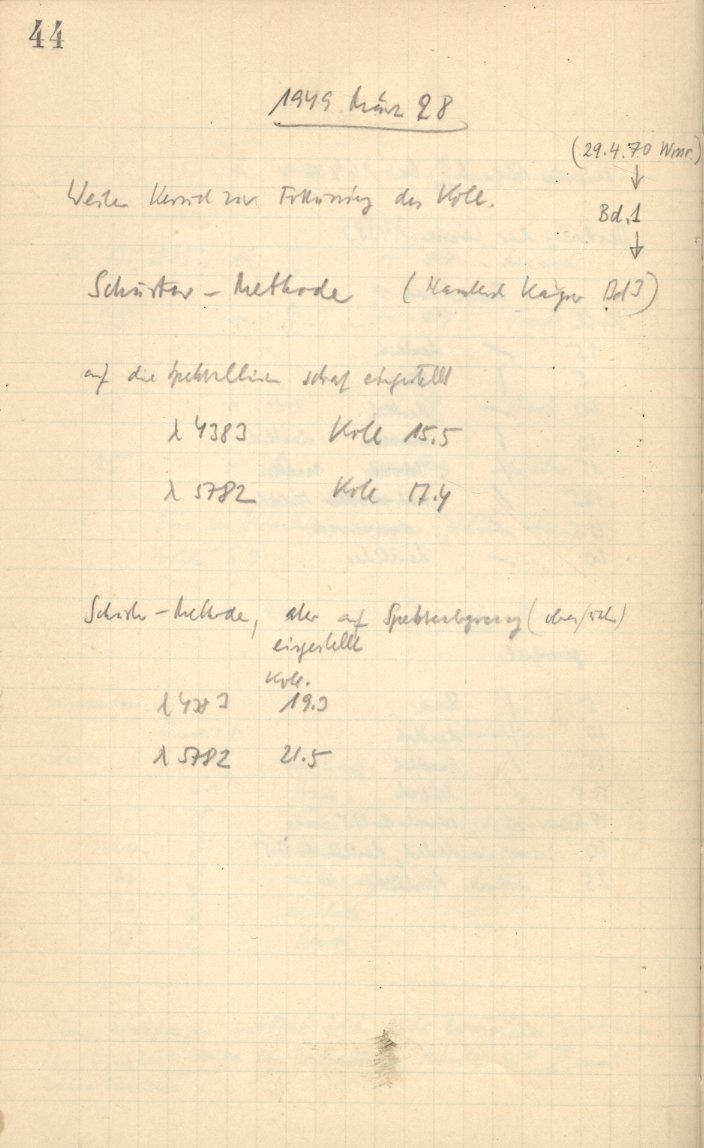 44
1949 März 28
(29.4.70 Wmr.)
Weiterer Versuch zur Fokussierung des Koll.
Bd.1
Schuster-Methode (Handbuch Kayser Bd 3)
auf die Spektrallinien scharf eingestellt
λ 4383 Koll 15.5
λ 5782 Koll 17.4
Schuster-Methode, aber auf Spektrenbegrenzung (oben/unten)
eingestellt
Koll.
λ 4383 19.3
λ 5782 21.5